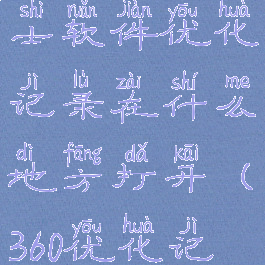 shì ruǎn jiàn yōu huà
士软件优化
jì lù zài shí me
记录在什么
dì fāng dǎ kāi
地方打开（
yōu huà jì
360优化记